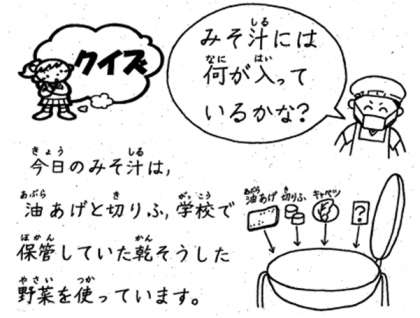 クイズ
みそ汁には
何が入って
いるかな?
今日のみそ汁は,
油あげと切りふ,学校で
保管していた乾そうした
野菜を使っています。
油あげ
切りふ
キャベツ
?